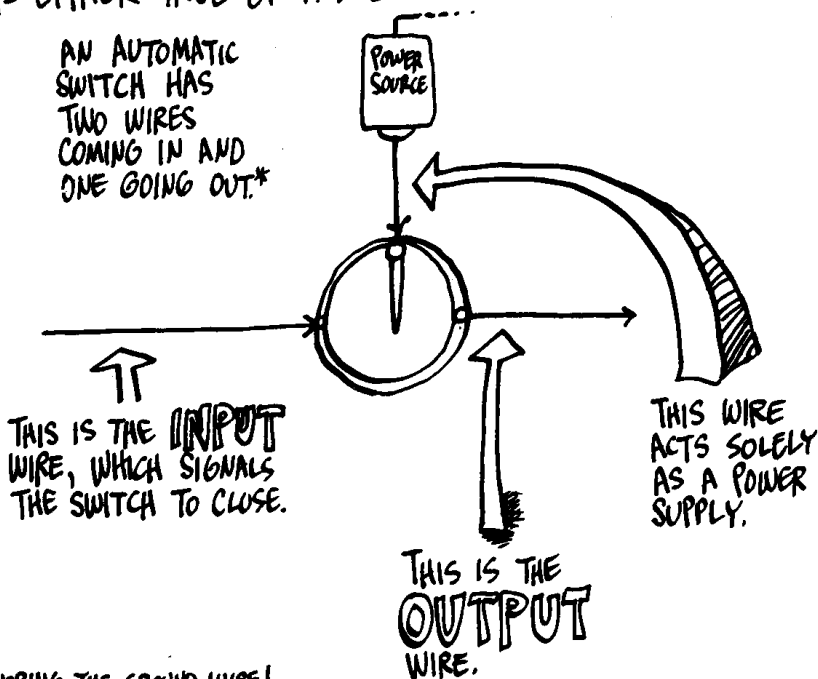 EITHER
AN AUTOMATIC
SWITCH HAS
TWO WIRES
COMING IN AND
ONE GOING OUT.*
POWER
SOURCE
THIS IS THE INPUT
WIRE, WHICH SIGNALS
THE SWITCH TO CLOSE.
THIS WIRE
ACTS SOLELY
AS A POWER
SUPPLY.
THIS IS THE
OUTPUT
WIRE.
THE GROUND WIRE!